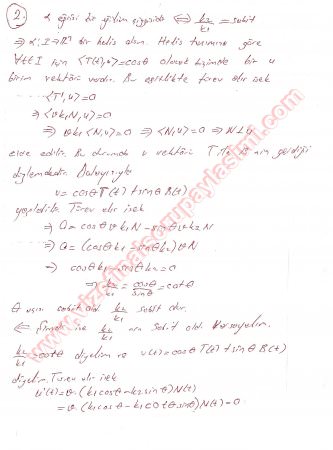 2. α eğrisi bir eğilim çizgisidir ⇔ k2/k1 = sabit
⇒ α: I→ℝⁿ bir helis olsun. Helis tanımına göre
∀t∈I için <T(t),u>=cosθ olacak biçimde bir u
birim vektörü vardır. Bu eşitlikte türev alır isek
<T',u>=0
⇒ <ϑk1N,u>=0
⇒ ϑk1<N,u>=0 ⇒ <N,u>=0 ⇒ N⊥u
elde edilir. Bu durumda u vektörü T ile B nin gerdiği
düzlemdedir. Dolayısıyla
u=cosθT(t)+sinθB(t)
yazılabilir. Türev alır isek
⇒ 0=cosθϑk1N-sinθϑk2N
⇒ 0=(cosθk1-sinθk2)ϑN
⇒ cosθk1-sinθk2=0
⇒ k2/k1=cosθ/sinθ=cotθ
θ açısı sabit old. k2/k1 sabit olur.
⇐ Şimdi ise k2/k1 sabit old. Varsayalım.
k2/k1=cotθ diyelim ve u(t)=cosθT(t)+sinθB(t)
diyelim. Türev alır isek
u'(t)=ϑ.(k1cosθ-k2sinθ)N(t)
=ϑ.(k1cosθ-k1cotθsinθ)N(t)=0